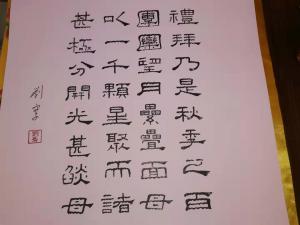 禮拜乃是秋季之首
團團望月疊疊面母
以一千顆星聚而諸
甚極分開光甚談母